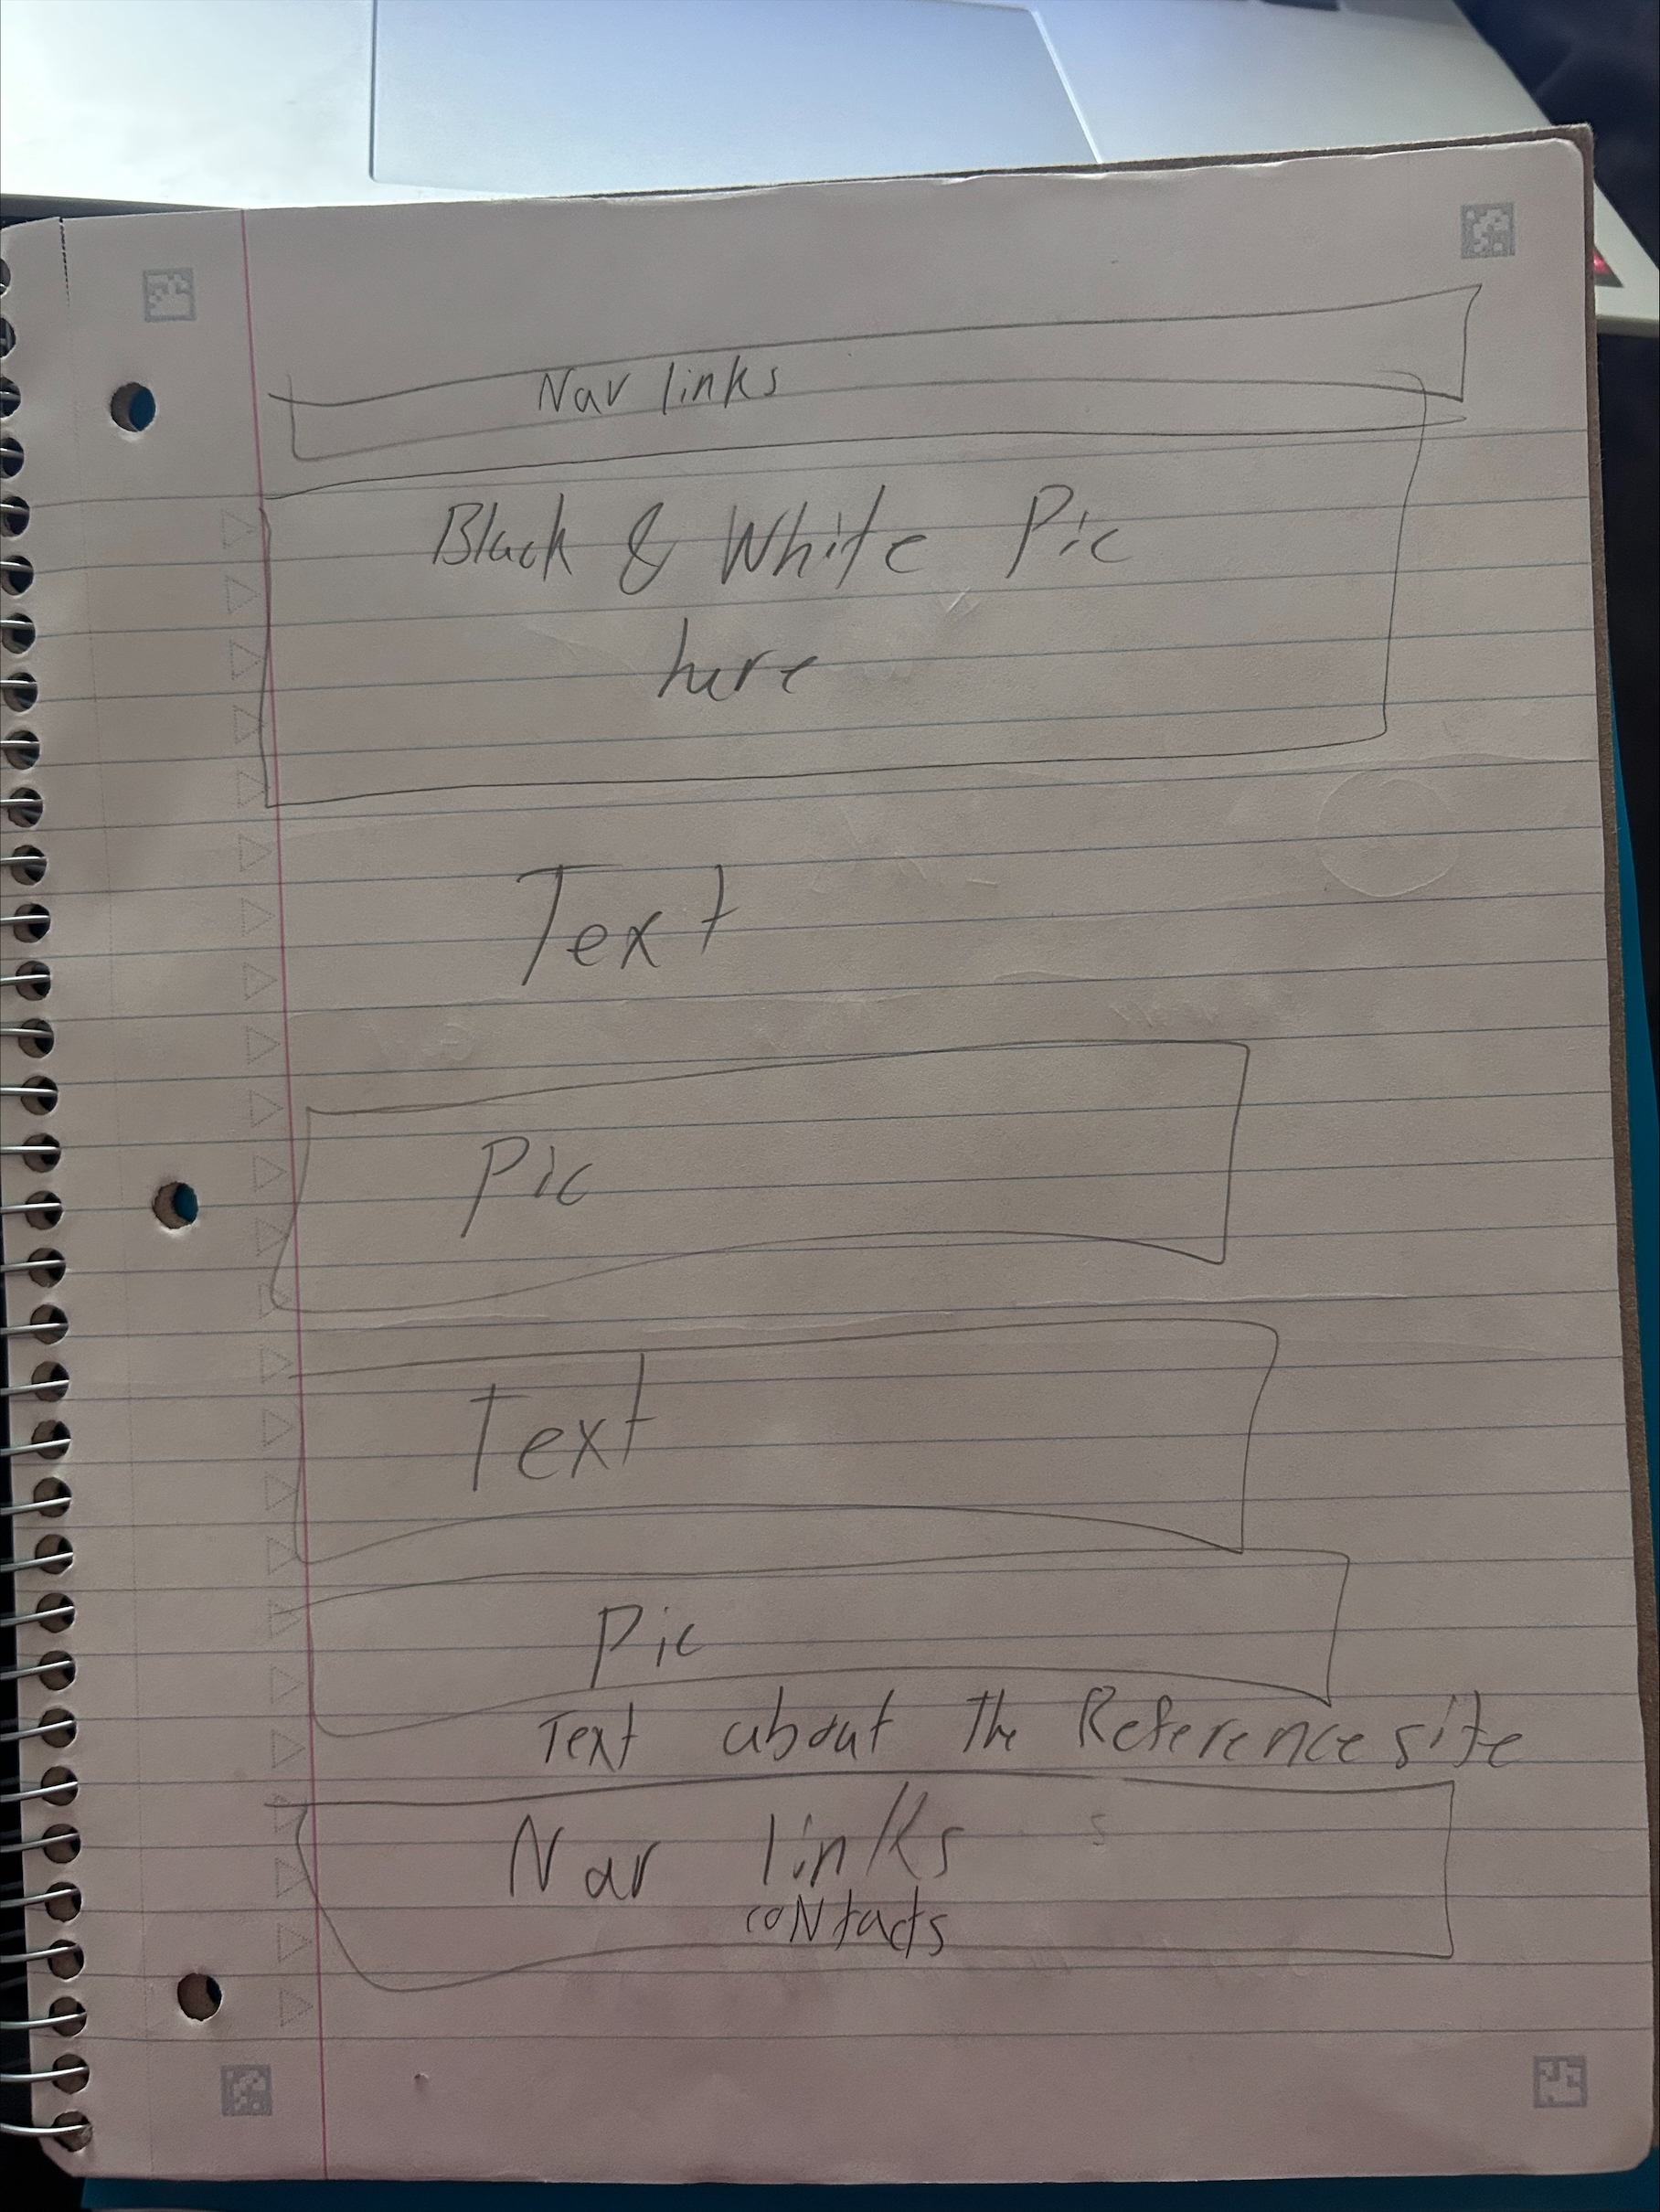 Nav links
Black & White Pic
here
Text
Pic
Text
Pic
Text about The Reference site
Nav links s
coNtacts